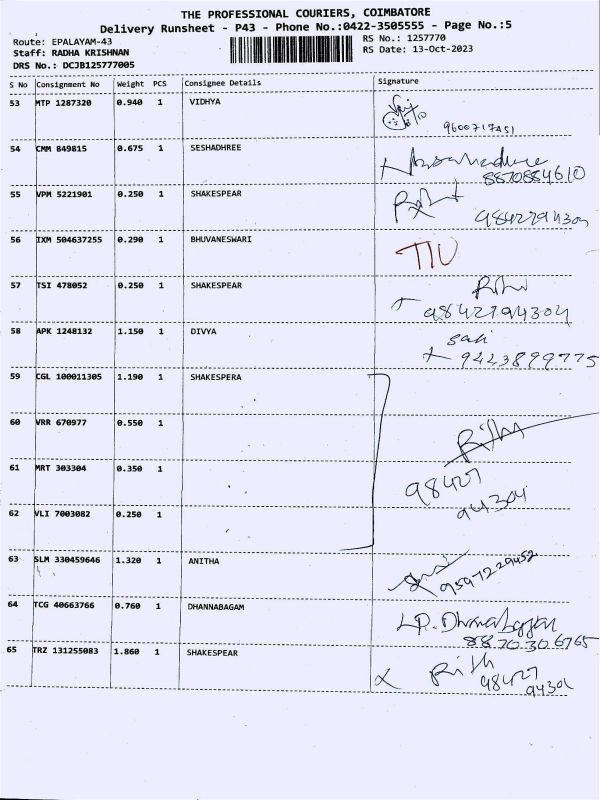 THE PROFESSIONAL COURIERS, COIMBATORE
Delivery Runsheet - P43 - Phone No.:0422-3505555 - Page No.:5
Route: EPALAYAM-43 RS No.: 1257770
Staff: RADHA KRISHNAN RS Date: 13-Oct-2023
DRS No.: DCJB125777005
S No Consignment No Weight PCS Consignee Details Signature
53 MTP 1287320 0.940 1 VIDHYA
9600717451
54 CMM 849815 0.675 1 SESHADHREE
8870884610
55 VPM 5221901 0.250 1 SHAKESPEAR
56 IXM 504637255 0.290 1 BHUVANESWARI
57 TSI 478052 0.250 1 SHAKESPEAR
9842794304
58 APK 1248132 1.150 1 DIVYA
9423899775
59 CGL 100011305 1.190 1 SHAKESPERA
60 VRR 670977 0.550 1
61 MRT 303304 0.350 1
98427
94304
62 VLI 7003082 0.250 1
63 SLM 330459646 1.320 1 ANITHA
9597229452
64 TCG 40663766 0.760 1 DHANNABAGAM
8870306765
65 TRZ 131255083 1.860 1 SHAKESPEAR
98427